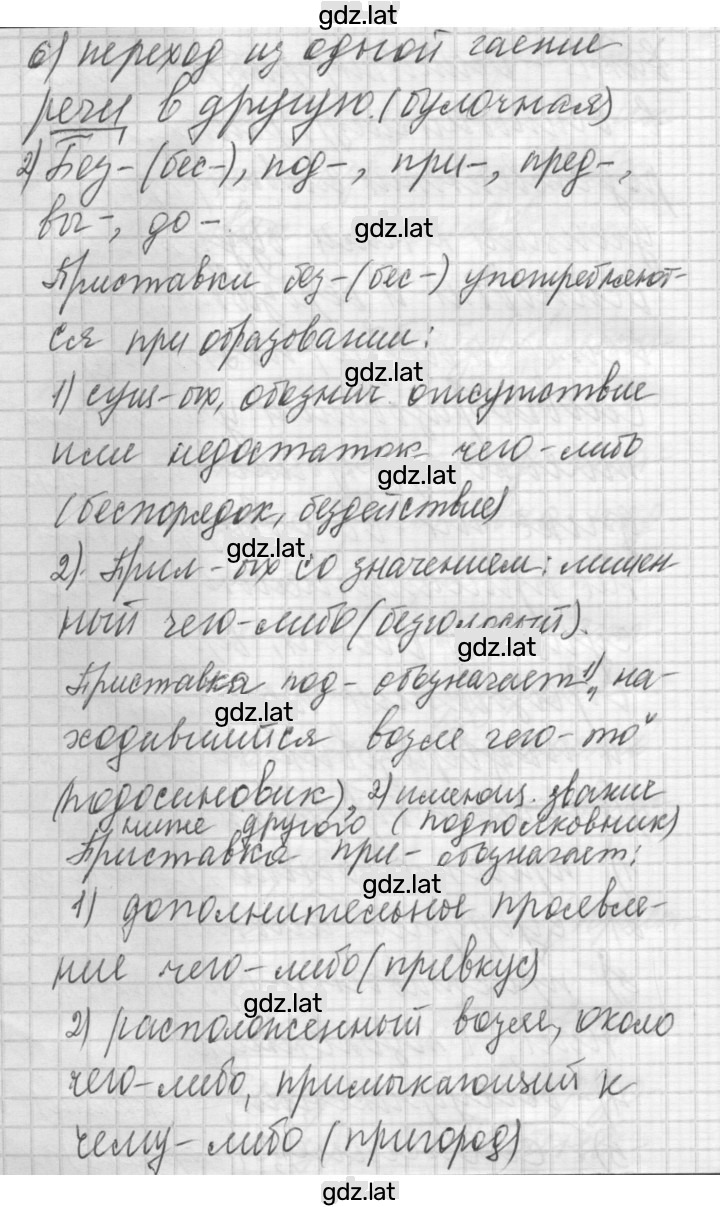 gdz.lat
6) переход из одной части
речи в другую. (булочная)
2) Без- (бес-), под-, при-, пред-,
вы-, до-.
gdz.lat
Приставки без-(бес-) употребляют-
ся при образовании:
gdz.lat
1) сущ-ых, обознач. отсутствие
или недостаток чего-либо
gdz.lat
(беспорядок, бездействие)
gdz.lat
2) Прил-ых со значением: лишен-
ный чего-либо (безголосый).
gdz.lat
Приставка под- обозначает 1) „на-
gdz.lat
ходившийся возле чего-то"
(подосиновик), 2) имеющ. звание
ниже другого (подполковник)
Приставка при- обозначает:
gdz.lat
1) дополнительное проявле-
ние чего-либо (привкус)
gdz.lat
2) расположенный возле, около
чего-либо, примыкающий к
чему-либо (пригород)
gdz.lat